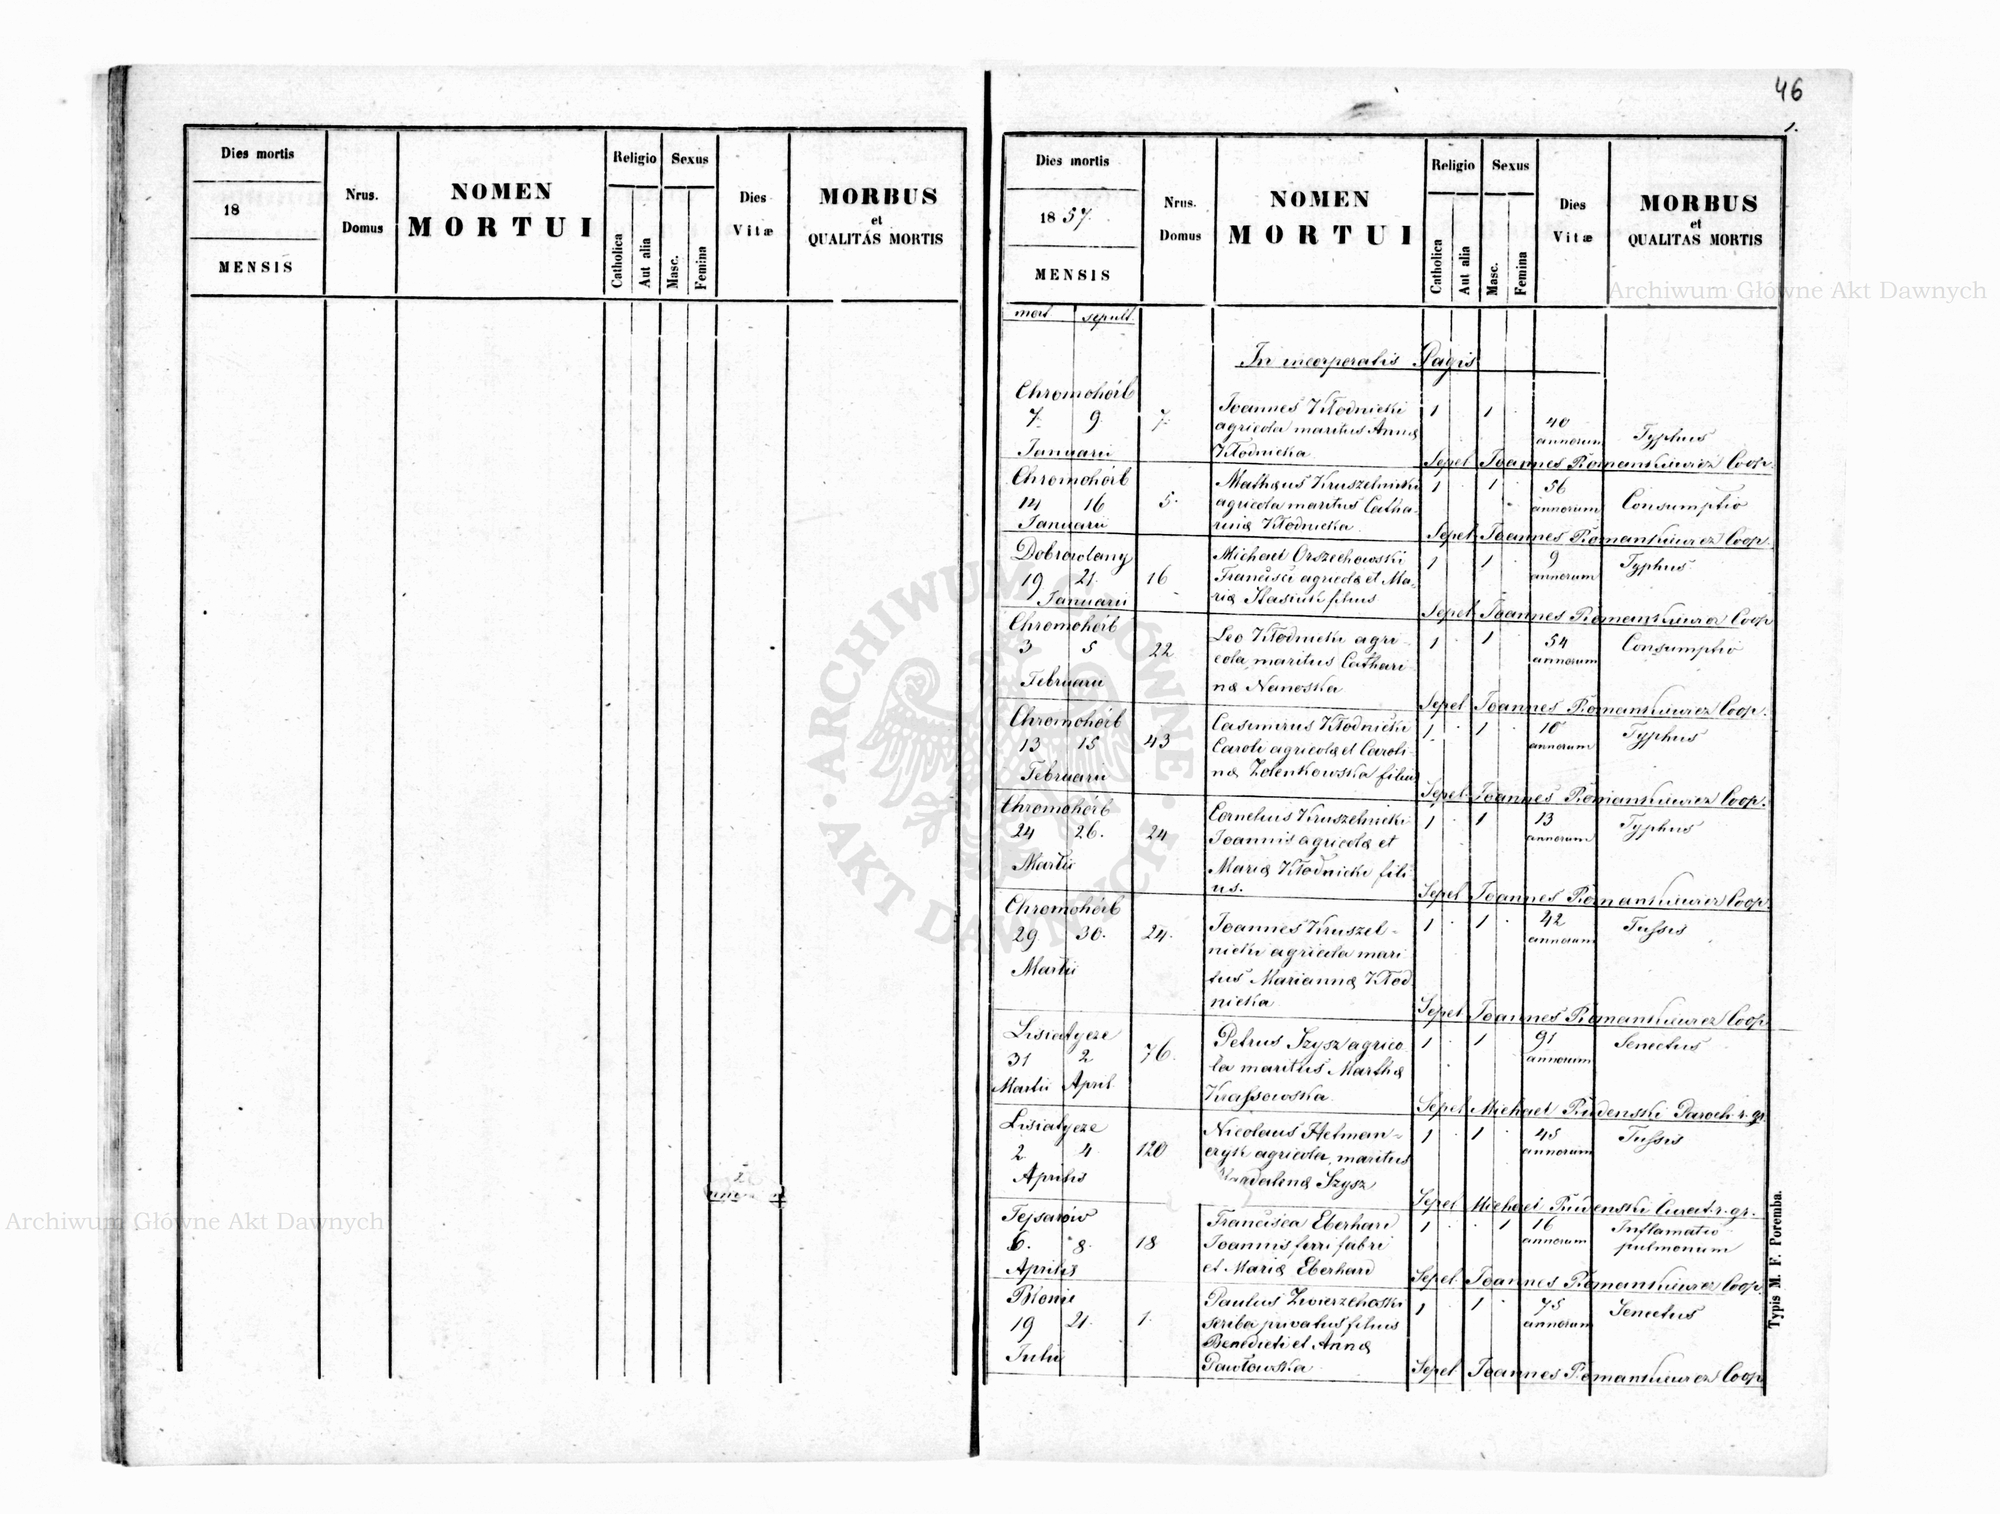 46
1.
Dies mortis
18
MENSIS
Nrus.
Domus
NOMEN
MORTUI
Religio
Catholica
Aut alia
Sexus
Masc.
Femina
Dies
Vitæ
MORBUS
et
QUALITÁS MORTIS
Dies mortis
18 57.
MENSIS
Nrus.
Domus
NOMEN
MORTUI
Religio
Catholica
Aut alia
Sexus
Masc.
Femina
Dies
Vitæ
MORBUS
et
QUALITAS MORTIS
mort sepult.
In incorporatis Pagis
Chromohórb
7. 9. 7. Joannes Kłodnicki 1 1 40
agricola maritus Annæ annorum Typhus
Januarii Kłodnicka
Sepel. Joannes Romankiewicz Coop.
Chromohórb Mathæus Kruszelnicki 1 1 56
14 16 5. agricola maritus Catha- annorum Consumptio
Januarii rinæ Kłodnicka
Sepel. Joannes Romankiewicz Coop.
Dobrowlany Michael Orszechowski 1 1 9 Typhus
19 21. 16 Francisci agricolæ et Ma- annorum
Januarii riæ Stasiuk filius
Sepel. Joannes Romankiewicz Coop
Chromohórb Leo Kłodnicki agri- 1 1 54 Consumptio
3 5 22 cola, maritus Cathari- annorum
Februarii næ Nanoska
Sepel. Joannes Romankiewicz Coop.
Chromohórb Casimirus Kłodnicki 1 1 Typhus
13 15 43 Caroli agricolæ et Caroli- annorum
Februarii næ Zelenkowska filius
Sepel. Joannes Romankiewicz Coop.
Chromohórb Cornelius Kruszelnicki 1 1 13 Typhus
24 26. 24 Joannis agricolæ et annorum
Martii Mariæ Kłodnicki fili-
us.
Sepel. Joannes Romankiewicz Coop.
Chromohórb Joannes Kruszel- 1 1 42 Tussis
29 30. 24. nicki agricola mari annorum
Martii tus Mariannæ Kłod
nicka
Sepel. Joannes Romankiewicz Coop
Lisiatycze Petrus Szysz agrico 1 1 91 Senectus
31 2 76. la maritus Marthæ annorum
Martii April Krassowska
Sepel. Michael Rudenski Paroch. r. gr.
Lisiatycze Nicolaus Hetman- 1 1 45 Tussis
2 4. 120 czyk agricola, maritus annorum
Aprilis Magdalenæ Szysz
Sepel. Michael Rudenski Curat. r. gr.
Tejsarów Francisca Eberhard 1 1 16 Inflamatio
6. 8. 18 Joannis ferri fabri annorum pulmonum
Aprilis et Mariæ Eberhard
Sepel. Joannes Romankiewicz Coop.
Błonie Paulus Zwierzchoski 1 1 75 Senectus
19 21. 1. scriba privatus filius annorum
Julii Benedicti et Annæ
Pawłowska
Sepel. Joannes Romankiewicz Coop
Typis M. F. Poremba.
Archiwum Główne Akt Dawnych
Archiwum Główne Akt Dawnych
ARCHIWUM GŁÓWNE AKT DAWNYCH